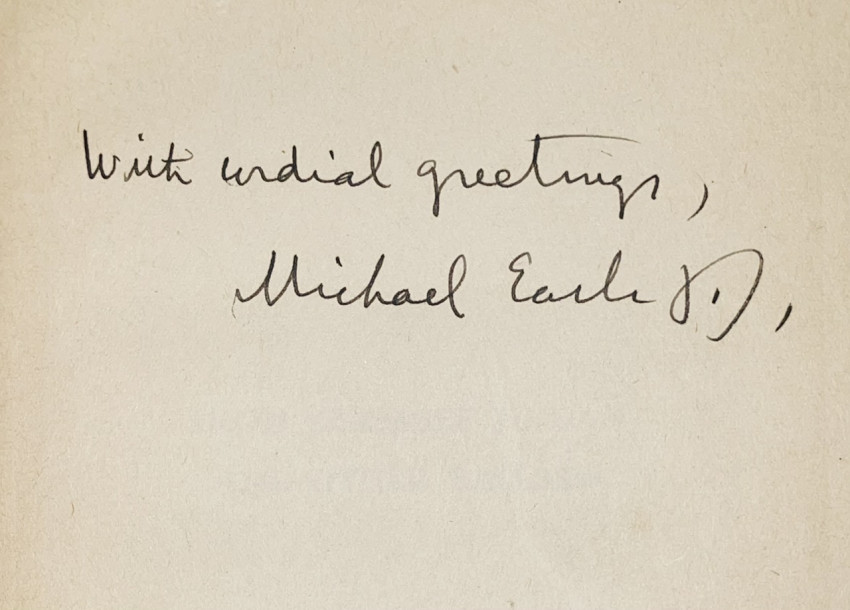 With cordial greetings,
Michael Earls S.J.,